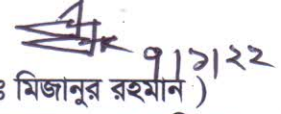 ৭।১।২২
ঃ মিজানুর রহমান )